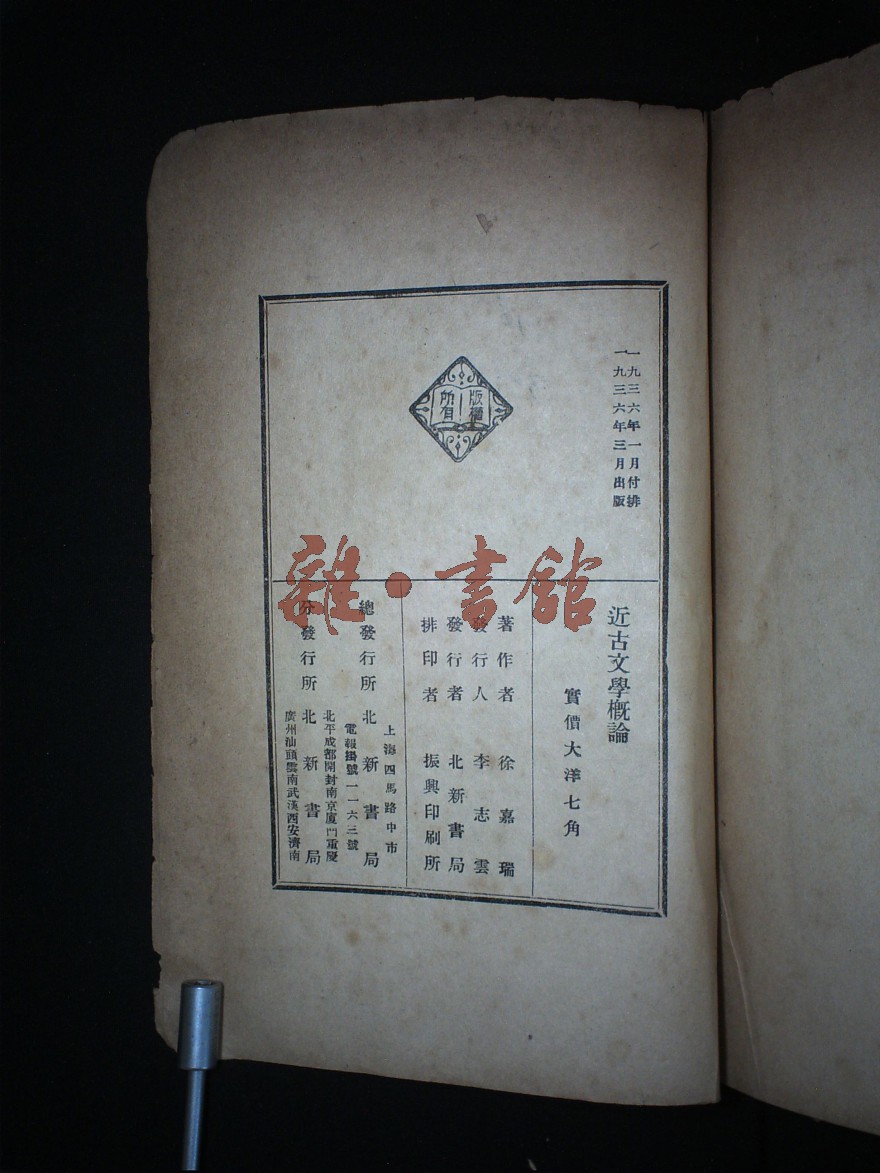 一九三六年一月付排
一九三六年三月出版
版權
所有
近古文學概論
實價大洋七角
著作者 徐嘉瑞
發行人 李志雲
發行者 北新書局
排印者 振興印刷所
上海四馬路中市
總發行所 北新書局
電報掛號一一六三號
北平成都開封南京廈門重慶
分發行所 北新書局
廣州汕頭雲南武漢西安濟南
雜·書館